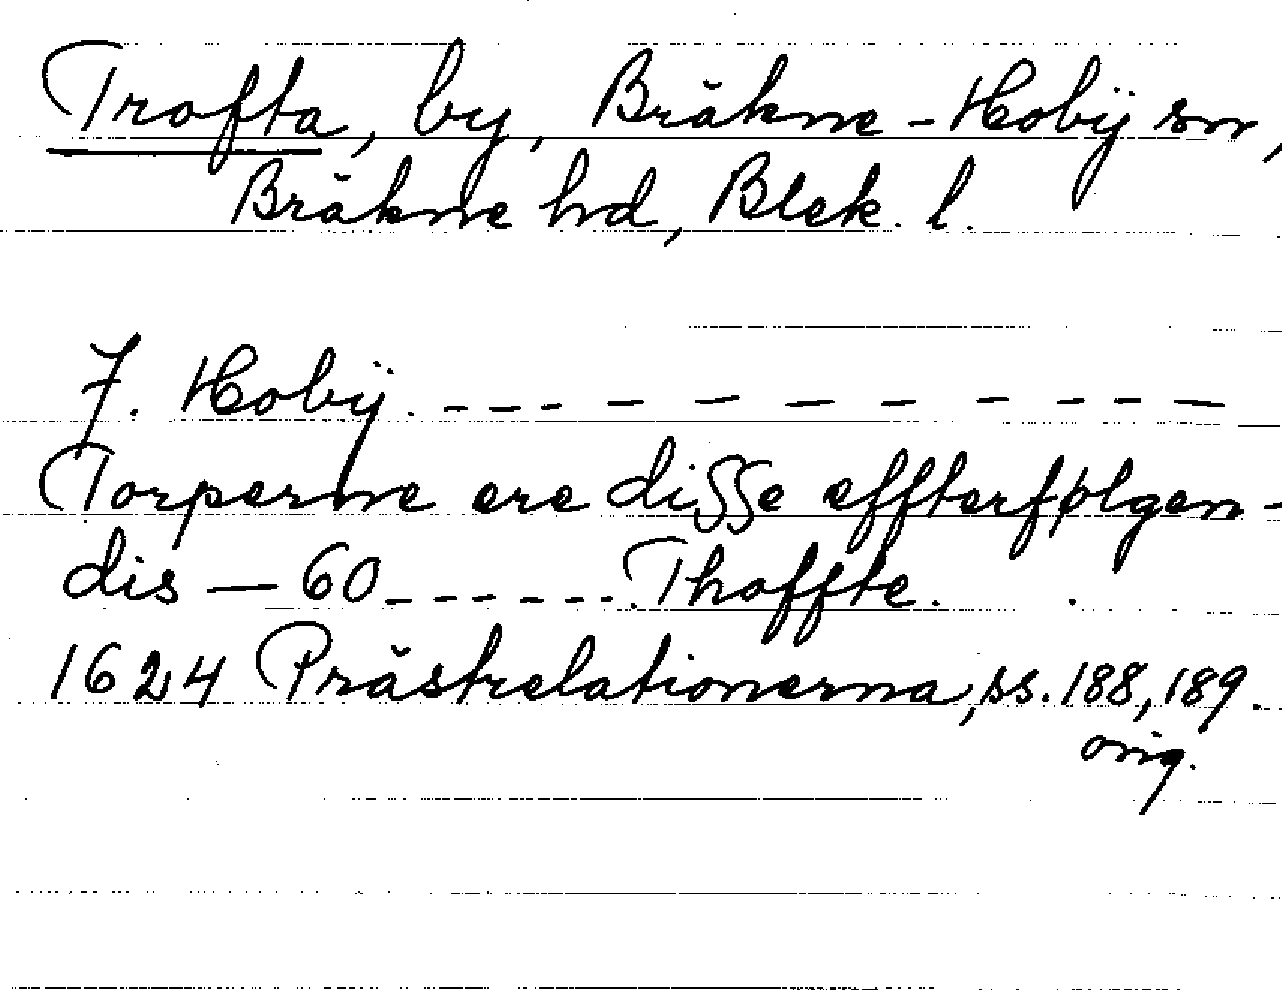 Trofta, by, Bräkne-Hobÿ sn,
Bräkne hd, Blek. l.
J. Hobÿ. - - - - - - - - - - - -
Torperne ere disse effterfølgen-
dis — 60 - - - - - - . Thoffte.
1624 Prästrelationerna, ss. 188, 189.
orig.